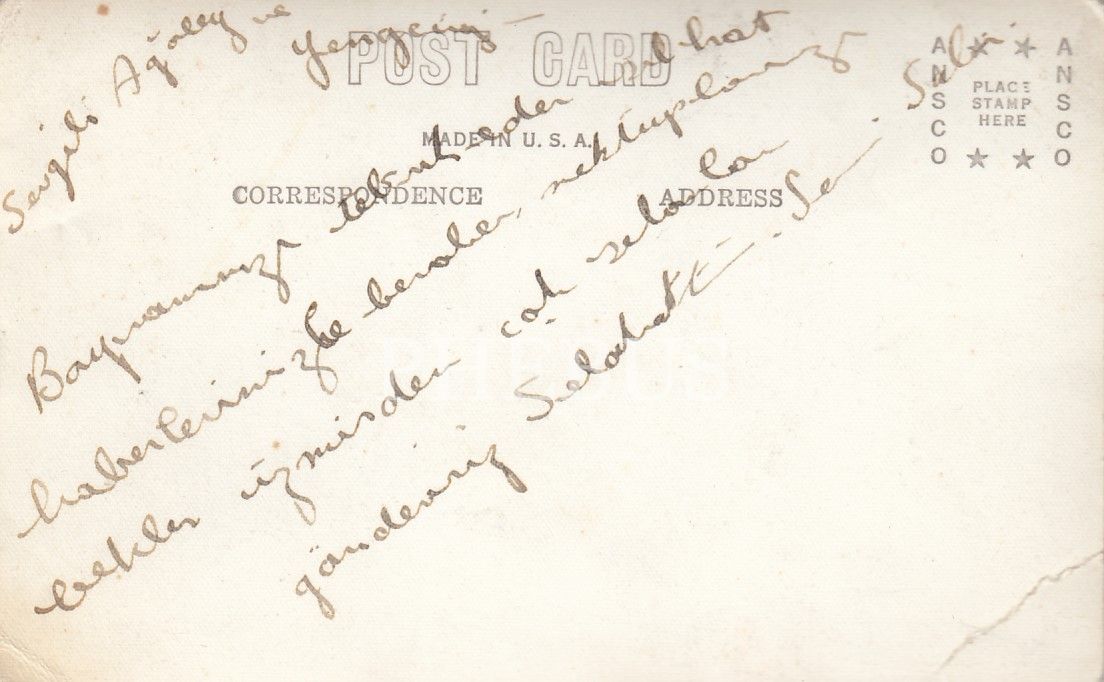 POST CARD
MADE IN U. S. A.
CORRESPONDENCE
ADDRESS
ANSCO
PLACE
STAMP
HERE
ANSCO
Sevgili Ağabey ve Yengemiz
Bayramınızı tebrik eder sıhhat
haberlerinizle beraber, mektuplarınızı
bekler izmirden çok selamlar
göndeririz